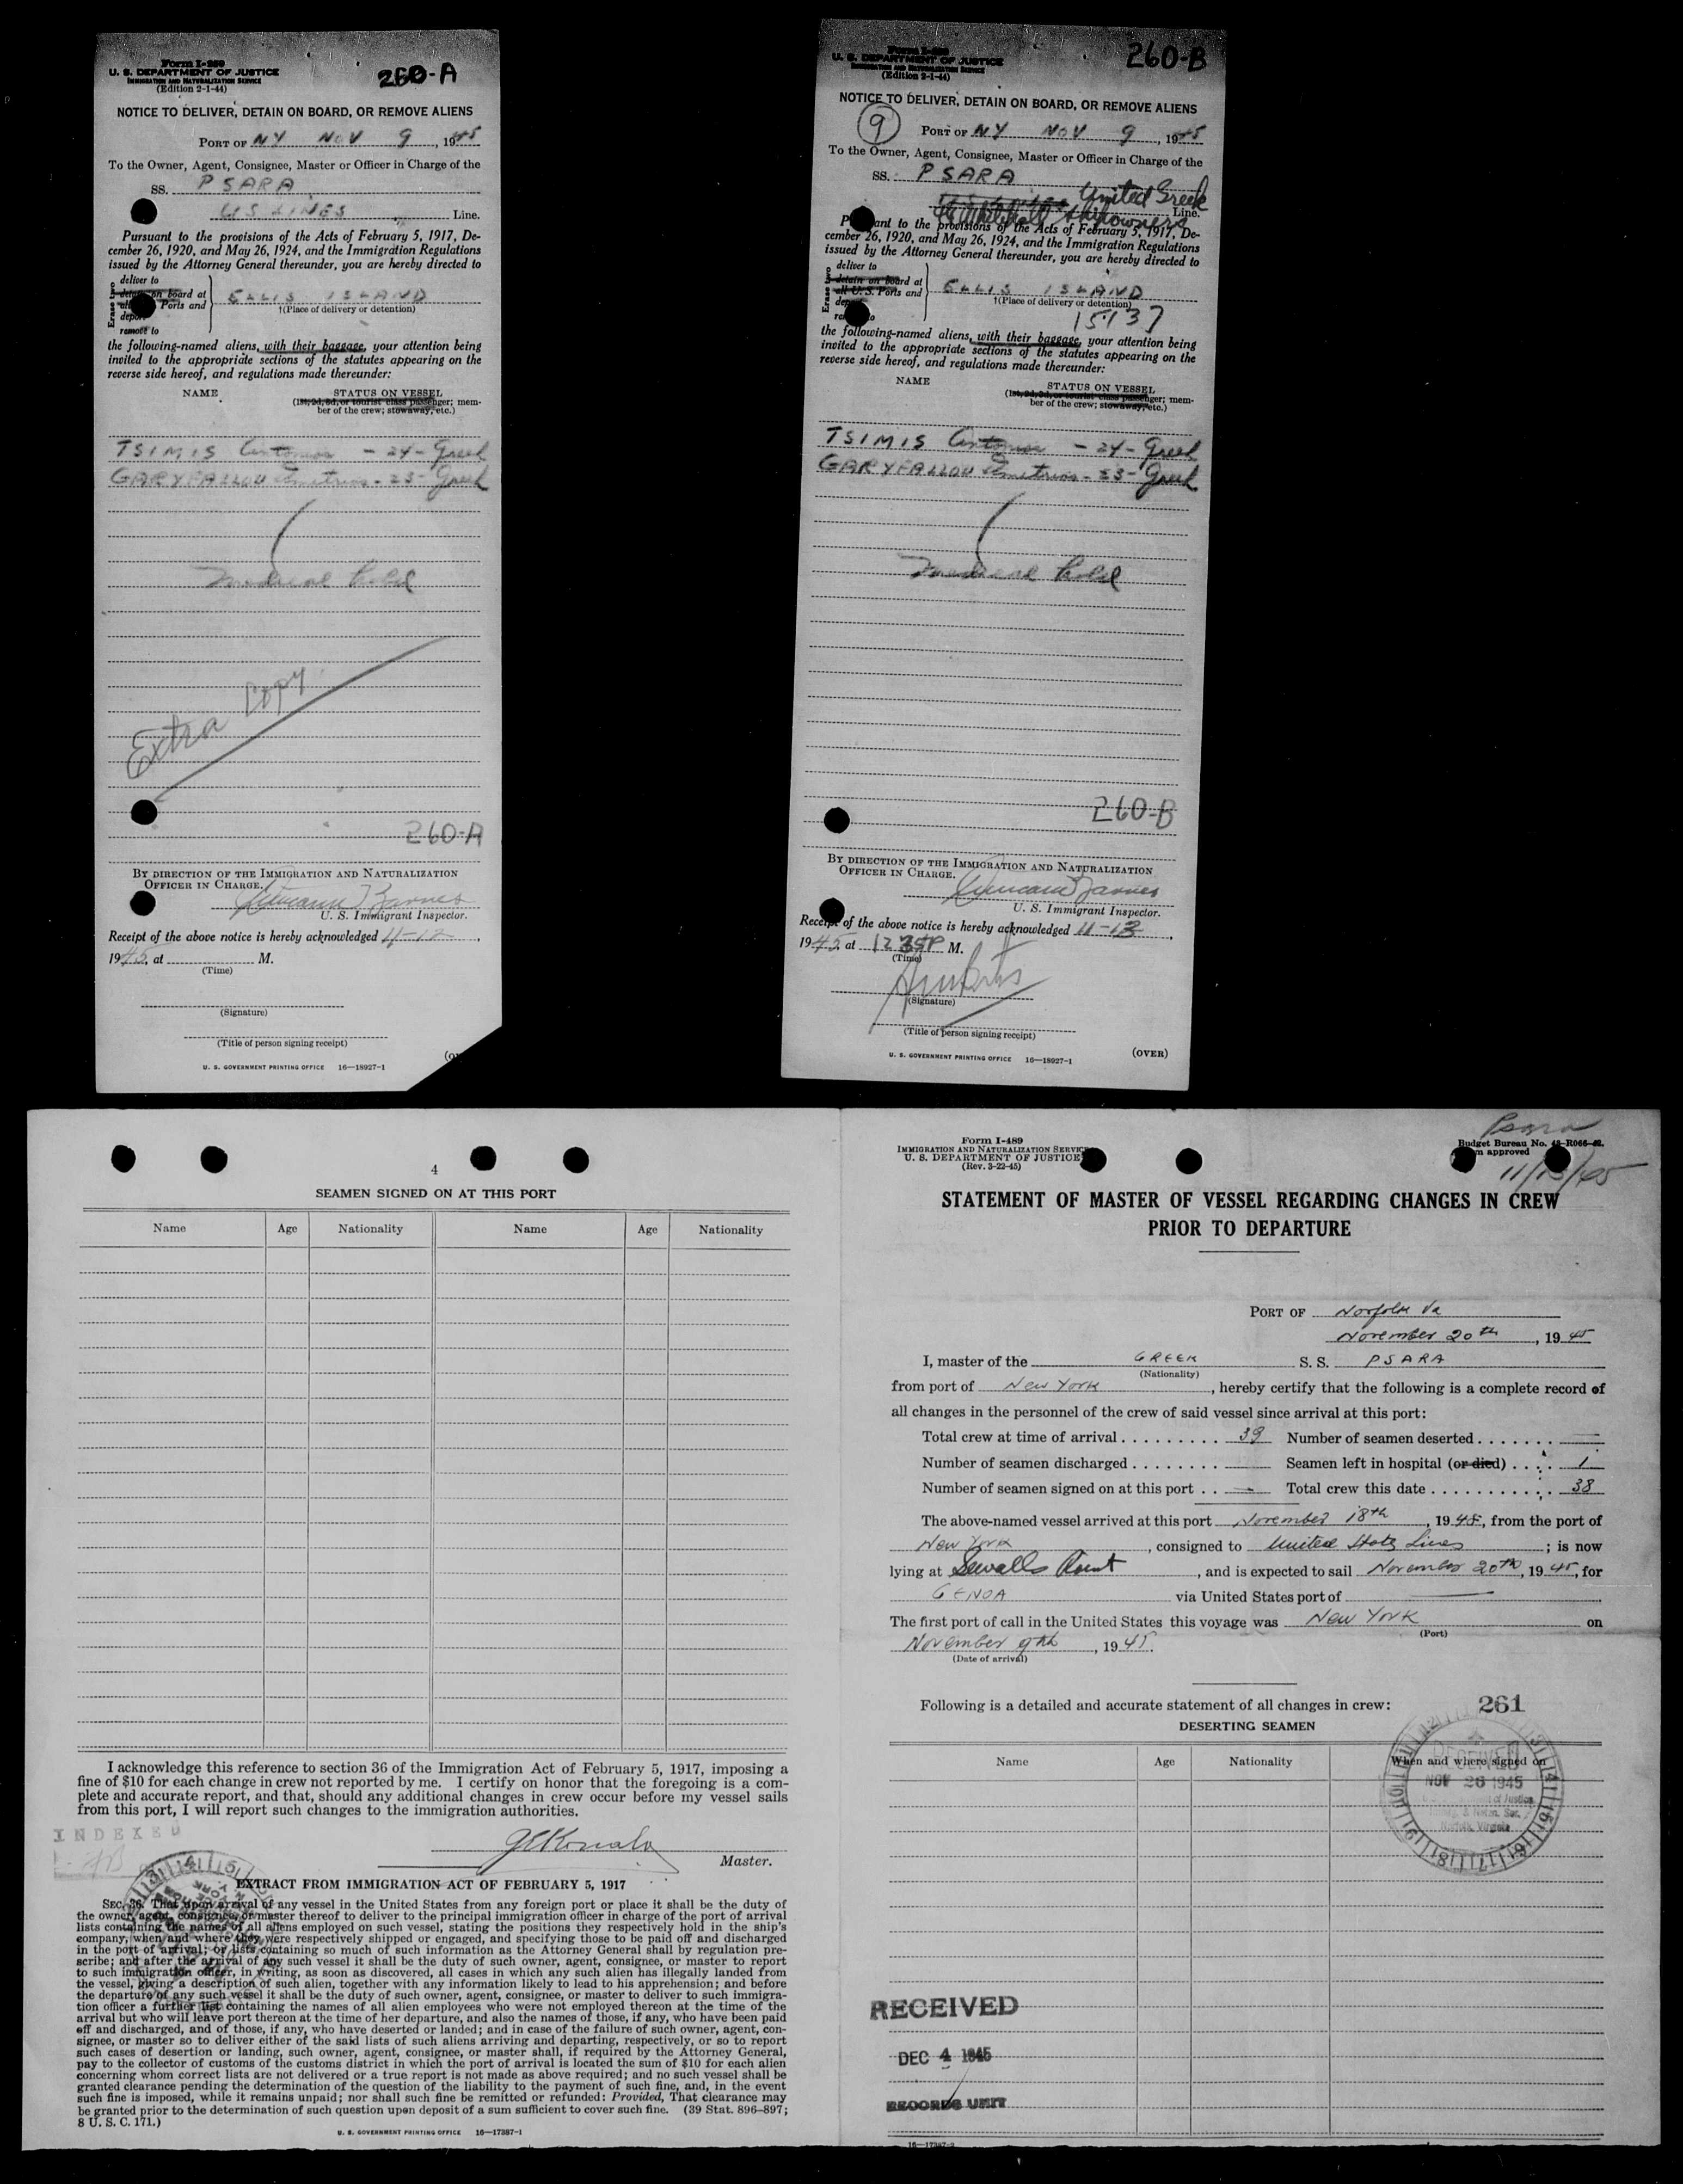 Form I-259
U. S. DEPARTMENT OF JUSTICE
IMMIGRATION AND NATURALIZATION SERVICE
(Edition 2-1-44)
260-A
NOTICE TO DELIVER, DETAIN ON BOARD, OR REMOVE ALIENS
PORT OF NY NOV 9, 1945
To the Owner, Agent, Consignee, Master or Officer in Charge of the
SS. PSARA
US LINES Line.
Pursuant to the provisions of the Acts of February 5, 1917, De-
cember 26, 1920, and May 26, 1924, and the Immigration Regulations
issued by the Attorney General thereunder, you are hereby directed to
Erase two
deliver to
detain on board at
all Ports and
deport
remove to
ELLIS ISLAND
†(Place of delivery or detention)
the following-named aliens, with their baggage, your attention being
invited to the appropriate sections of the statutes appearing on the
reverse side hereof, and regulations made thereunder:
NAME STATUS ON VESSEL
(1st, 2d, 3d, or tourist class passenger; mem-
ber of the crew; stowaway, etc.)
TSIMIS Antonios - 24 - Greek
GARYFALLOU Dmitrios - 23 - Greek
Medical hold
Extra Copy
260-A
BY DIRECTION OF THE IMMIGRATION AND NATURALIZATION
OFFICER IN CHARGE.
U. S. Immigrant Inspector.
Receipt of the above notice is hereby acknowledged 11-12,
1945, at M.
(Time)
(Signature)
(Title of person signing receipt)
U. S. GOVERNMENT PRINTING OFFICE 16—18927-1
Form I-259
U. S. DEPARTMENT OF JUSTICE
IMMIGRATION AND NATURALIZATION SERVICE
(Edition 2-1-44)
260-B
NOTICE TO DELIVER, DETAIN ON BOARD, OR REMOVE ALIENS
9
PORT OF NY NOV 9, 1945
To the Owner, Agent, Consignee, Master or Officer in Charge of the
SS. PSARA
United Greek
Shipowners Line.
Pursuant to the provisions of the Acts of February 5, 1917, De-
cember 26, 1920, and May 26, 1924, and the Immigration Regulations
issued by the Attorney General thereunder, you are hereby directed to
Erase two
deliver to
detain on board at
all U. S. Ports and
deport
remove to
ELLIS ISLAND
†(Place of delivery or detention)
15137
the following-named aliens, with their baggage, your attention being
invited to the appropriate sections of the statutes appearing on the
reverse side hereof, and regulations made thereunder:
NAME STATUS ON VESSEL
(1st, 2d, 3d, or tourist class passenger; mem-
ber of the crew; stowaway, etc.)
TSIMIS Antonios - 24 - Greek
GARYFALLOU Dmitrios - 23 - Greek
Medical hold
260-B
BY DIRECTION OF THE IMMIGRATION AND NATURALIZATION
OFFICER IN CHARGE.
U. S. Immigrant Inspector.
Receipt of the above notice is hereby acknowledged 11-13,
1945, at 1235P M.
(Time)
(Signature)
(Title of person signing receipt)
U. S. GOVERNMENT PRINTING OFFICE 16—18927-1 (OVER)
4
SEAMEN SIGNED ON AT THIS PORT
Name Age Nationality Name Age Nationality
I acknowledge this reference to section 36 of the Immigration Act of February 5, 1917, imposing a
fine of $10 for each change in crew not reported by me. I certify on honor that the foregoing is a com-
plete and accurate report, and that, should any additional changes in crew occur before my vessel sails
from this port, I will report such changes to the immigration authorities.
INDEXED
Master.
EXTRACT FROM IMMIGRATION ACT OF FEBRUARY 5, 1917
SEC. 36. That upon arrival of any vessel in the United States from any foreign port or place it shall be the duty of
the owner, agent, consignee, or master thereof to deliver to the principal immigration officer in charge of the port of arrival
lists containing the names of all aliens employed on such vessel, stating the positions they respectively hold in the ship's
company, when and where they were respectively shipped or engaged, and specifying those to be paid off and discharged
in the port of arrival; or lists containing so much of such information as the Attorney General shall by regulation pre-
scribe; and after the arrival of any such vessel it shall be the duty of such owner, agent, consignee, or master to report
to such immigration officer, in writing, as soon as discovered, all cases in which any such alien has illegally landed from
the vessel, giving a description of such alien, together with any information likely to lead to his apprehension; and before
the departure of any such vessel it shall be the duty of such owner, agent, consignee, or master to deliver to such immigra-
tion officer a further list containing the names of all alien employees who were not employed thereon at the time of the
arrival but who will leave port thereon at the time of her departure, and also the names of those, if any, who have been paid
off and discharged, and of those, if any, who have deserted or landed; and in case of the failure of such owner, agent, con-
signee, or master so to deliver either of the said lists of such aliens arriving and departing, respectively, or so to report
such cases of desertion or landing, such owner, agent, consignee, or master shall, if required by the Attorney General,
pay to the collector of customs of the customs district in which the port of arrival is located the sum of $10 for each alien
concerning whom correct lists are not delivered or a true report is not made as above required; and no such vessel shall be
granted clearance pending the determination of the question of the liability to the payment of such fine, and, in the event
such fine is imposed, while it remains unpaid; nor shall such fine be remitted or refunded: Provided, That clearance may
be granted prior to the determination of such question upon deposit of a sum sufficient to cover such fine. (39 Stat. 896-897;
8 U. S. C. 171.)
U. S. GOVERNMENT PRINTING OFFICE 16—17387-1
Psara
Form I-489
IMMIGRATION AND NATURALIZATION SERVICE
U. S. DEPARTMENT OF JUSTICE
(Rev. 3-22-45)
Budget Bureau No. 43-R066-42.
Form approved
11/13/45
STATEMENT OF MASTER OF VESSEL REGARDING CHANGES IN CREW
PRIOR TO DEPARTURE
PORT OF Norfolk Va
November 20th, 1945
I, master of the GREEK S. S. PSARA
(Nationality)
from port of New York, hereby certify that the following is a complete record of
all changes in the personnel of the crew of said vessel since arrival at this port:
Total crew at time of arrival 39 Number of seamen deserted —
Number of seamen discharged Seamen left in hospital (or died) 1
Number of seamen signed on at this port — Total crew this date 38
The above-named vessel arrived at this port November 18th, 1945, from the port of
New York, consigned to United States Lines; is now
lying at Sewalls Point, and is expected to sail November 20th, 1945, for
GENOA via United States port of —
The first port of call in the United States this voyage was New York on
(Port)
November 9th, 1945.
(Date of arrival)
Following is a detailed and accurate statement of all changes in crew:
261
DESERTING SEAMEN
Name Age Nationality When and where signed on
RECEIVED
NOV 26 1945
Norfolk, Virginia
RECEIVED
DEC 4 1945
RECORDS UNIT
16—17387-2